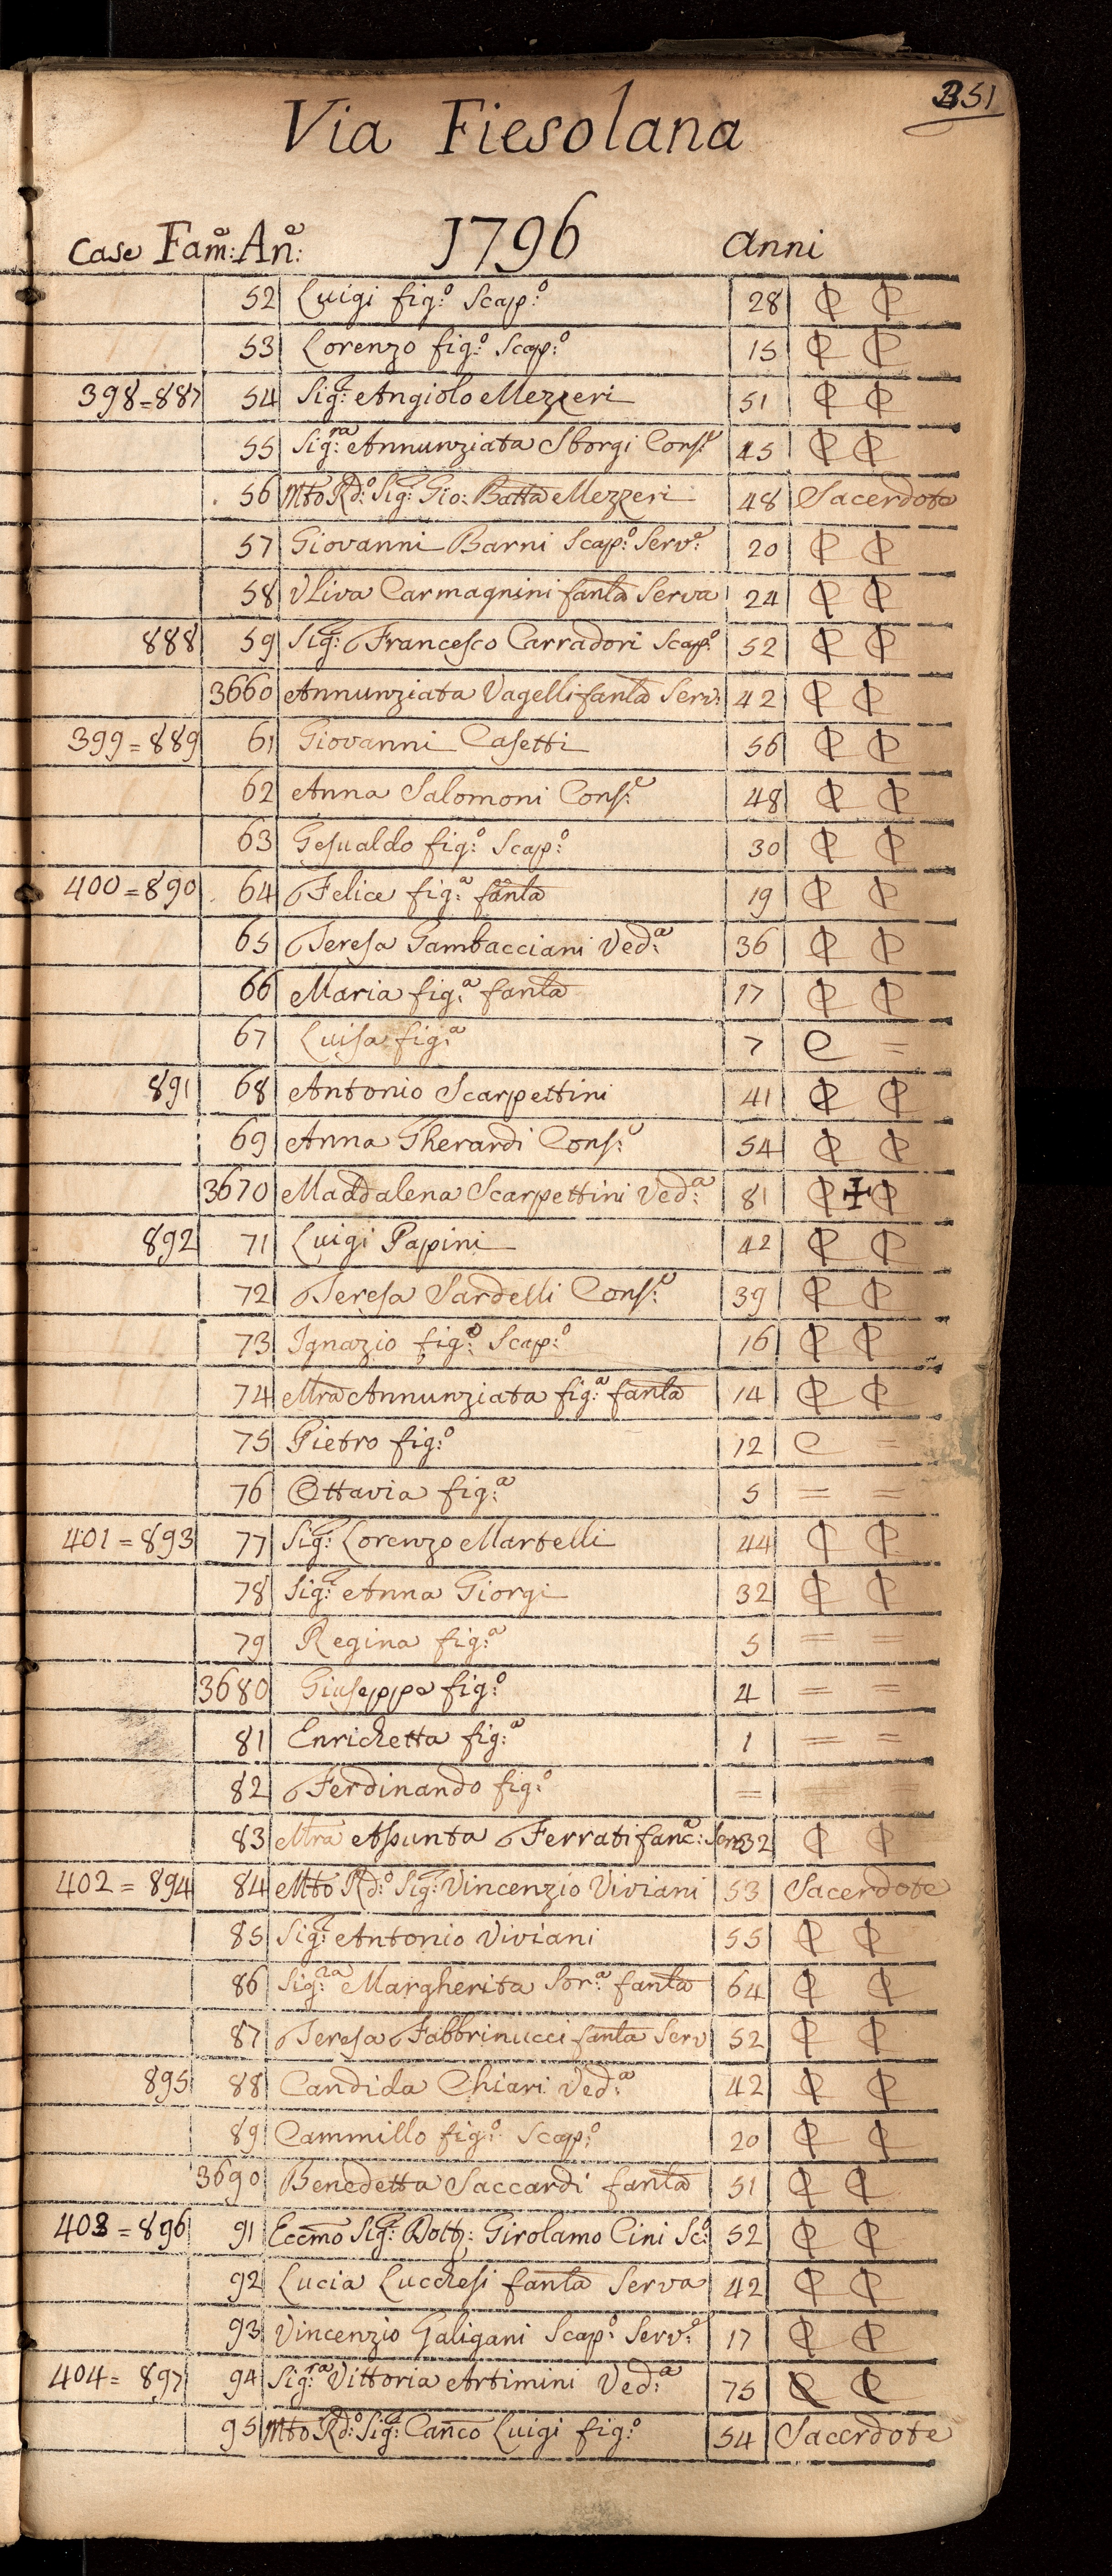 351
Via Fiesolana
Case Fam:e An:e 1796 anni
52 Luigi fig:o Scap:o 28 ₵ ₵
53 Lorenzo fig:o Scap:o 15 ₵ ₵
398=887 54 Sig:r Angiolo Mezzeri 51 ₵ ₵
55 Sig:ra Annunziata Sborgi Cons:e 45 ₵ ₵
56 Mto Rd:o Sig:r Gio: Batta Mezzeri 48 Sacerdote
57 Giovanni Barni Scap:o Serv:e 20 ₵ ₵
58 Uliva Carmagnini fanla Serva 24 ₵ ₵
888 59 Sig:r Francesco Carradori Scap:o 52 ₵ ₵
3660 Annunziata Vagelli fanla Serv: 42 ₵ ₵
399=889 61 Giovanni Casetti 56 ₵ ₵
62 Anna Salomoni Cons:e 48 ₵ ₵
63 Gesualdo fig:o Scap:o 30 ₵ ₵
400=890 64 Felice fig:a fanla 19 ₵ ₵
65 Teresa Gambacciani Ved:a 36 ₵ ₵
66 Maria fig:a fanla 17 ₵ ₵
67 Luisa fig:a 7 C =
891 68 Antonio Scarpettini 41 ₵ ₵
69 Anna Gherardi Cons:e 54 ₵ ₵
3670 Maddalena Scarpettini Ved:a 81 ₵ ✝ ₵
892 71 Luigi Papini 42 ₵ ₵
72 Teresa Sardelli Cons:e 39 ₵ ₵
73 Ignazio fig:o Scap:o 16 ₵ ₵
74 Mra Annunziata fig:a fanla 14 ₵ ₵
75 Pietro fig:o 12 C =
76 Ottavia fig:a 5 = =
401=893 77 Sig:r Lorenzo Martelli 44 ₵ ₵
78 Sig:r Anna Giorgi 32 ₵ ₵
79 Regina fig:a 5 = =
3680 Giuseppe fig:o 4 = =
81 Enrichetta fig:a 1 = =
82 Ferdinando fig:o =
83 Mra Assunta Ferrati fanc:a Serv 32 ₵ ₵
402=894 84 Mto Rd:o Sig:r Vincenzio Viviani 53 Sacerdote
85 Sig:r Antonio Viviani 55 ₵ ₵
86 Sig:ra Margherita Sor:a fanla 64 ₵ ₵
87 Teresa Fabbrinucci fanla Serv 52 ₵ ₵
895 88 Candida Chiari Ved:a 42 ₵ ₵
89 Cammillo fig:o Scap:o 20 ₵ ₵
3690 Benedetta Saccardi fanla 51 ₵ ₵
403=896 91 Eccmo Sig:r Dott: Girolamo Cini Sc:o 52 ₵ ₵
92 Lucia Lucchesi fanla Serva 42 ₵ ₵
93 Vincenzio Galigani Scap:o Serv:e 17 ₵ ₵
404=897 94 Sig:ra Vittoria Artimini Ved:a 75 ₵ ₵
95 Mto Rd:o Sig:r Canco Luigi fig:o 54 Sacerdote